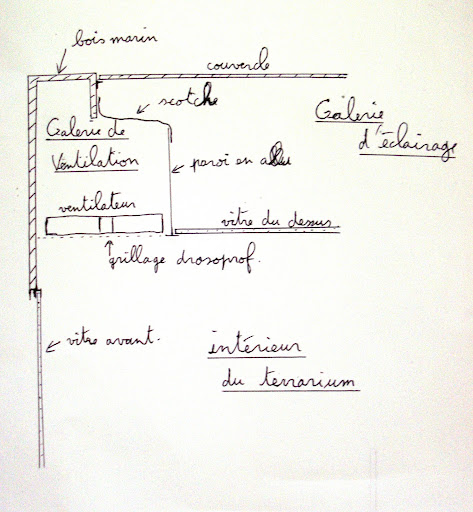 bois marin
couvercle
scotche
Galerie
d'éclairage
Galerie de
Ventilation
paroi en alu
ventilateur
vitre du dessus
grillage drosoprof.
vitre avant.
intérieur
du terrarium